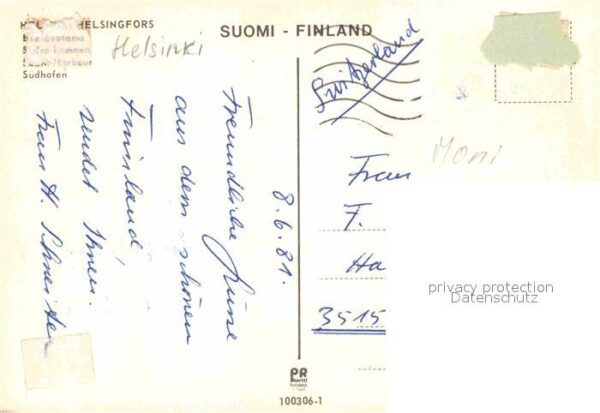 HELSINKI HELSINGFORS
Eteläsatama
Södra hamnen
South Harbour
Südhafen
Helsinki
SUOMI - FINLAND
Switzerland
Moni
8.6.81.
Freundliche Grüsse
aus dem schönen
Finnland
sendet Ihnen.
Frau H.
Frau
F.
Ha
3515
privacy protection
Datenschutz
PR
100306-1